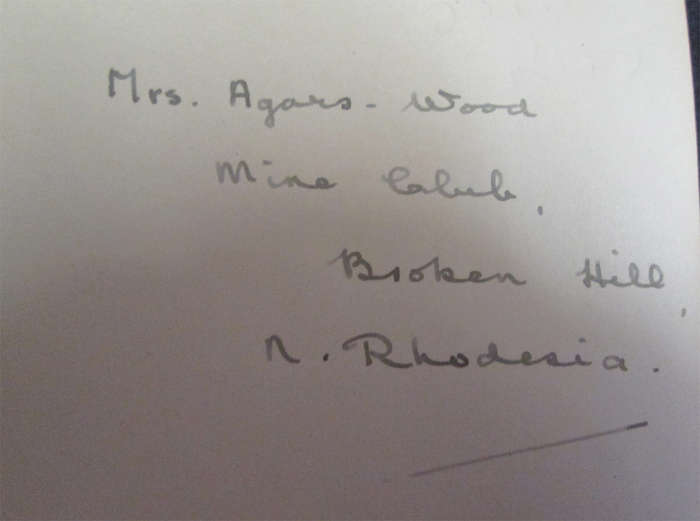 Mrs. Agars - Wood
Mine Club,
Broken Hill,
N. Rhodesia.